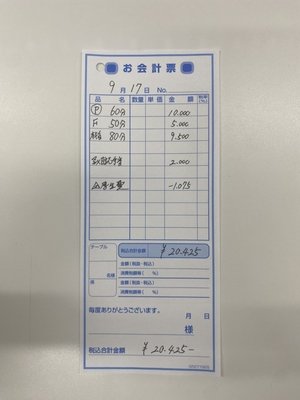 お会計票
9月17日 No.
品名 数量 単価 金額 税率(%)
Ⓟ 60分 10.000
F 50分 5.000
80分 9.500
2.000
厚生費 -1.075
テーブル 税込合計金額 ¥20.425
金額(税抜・税込)
名様 消費税額等( %)
係 金額(税抜・税込)
消費税額等( %)
毎度ありがとうございます。 月 日
様
税込合計金額 ¥20.425-